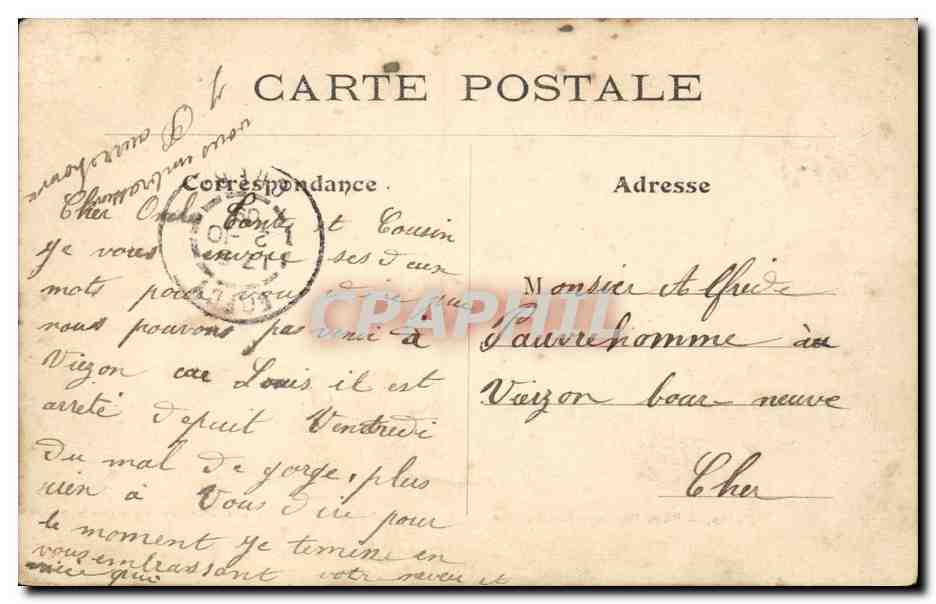 CARTE POSTALE
Correspondance
Adresse
Cher Oncle Tante et Cousin
je vous envoie ses deux
mots pour vous dire que
nous pouvons pas venir à
Viezon car Louis il est
arreté depuit Vendredi
du mal de gorge, plus
rien à Vous dire pour
le moment je termine en
vous embrassant votr neveu et
nièce qui
vous embrasse
J Pauvrehomme
Monsieur Alfride
Pauvrehomme au
Vierzon bour neuve
Cher
CPAPHIL